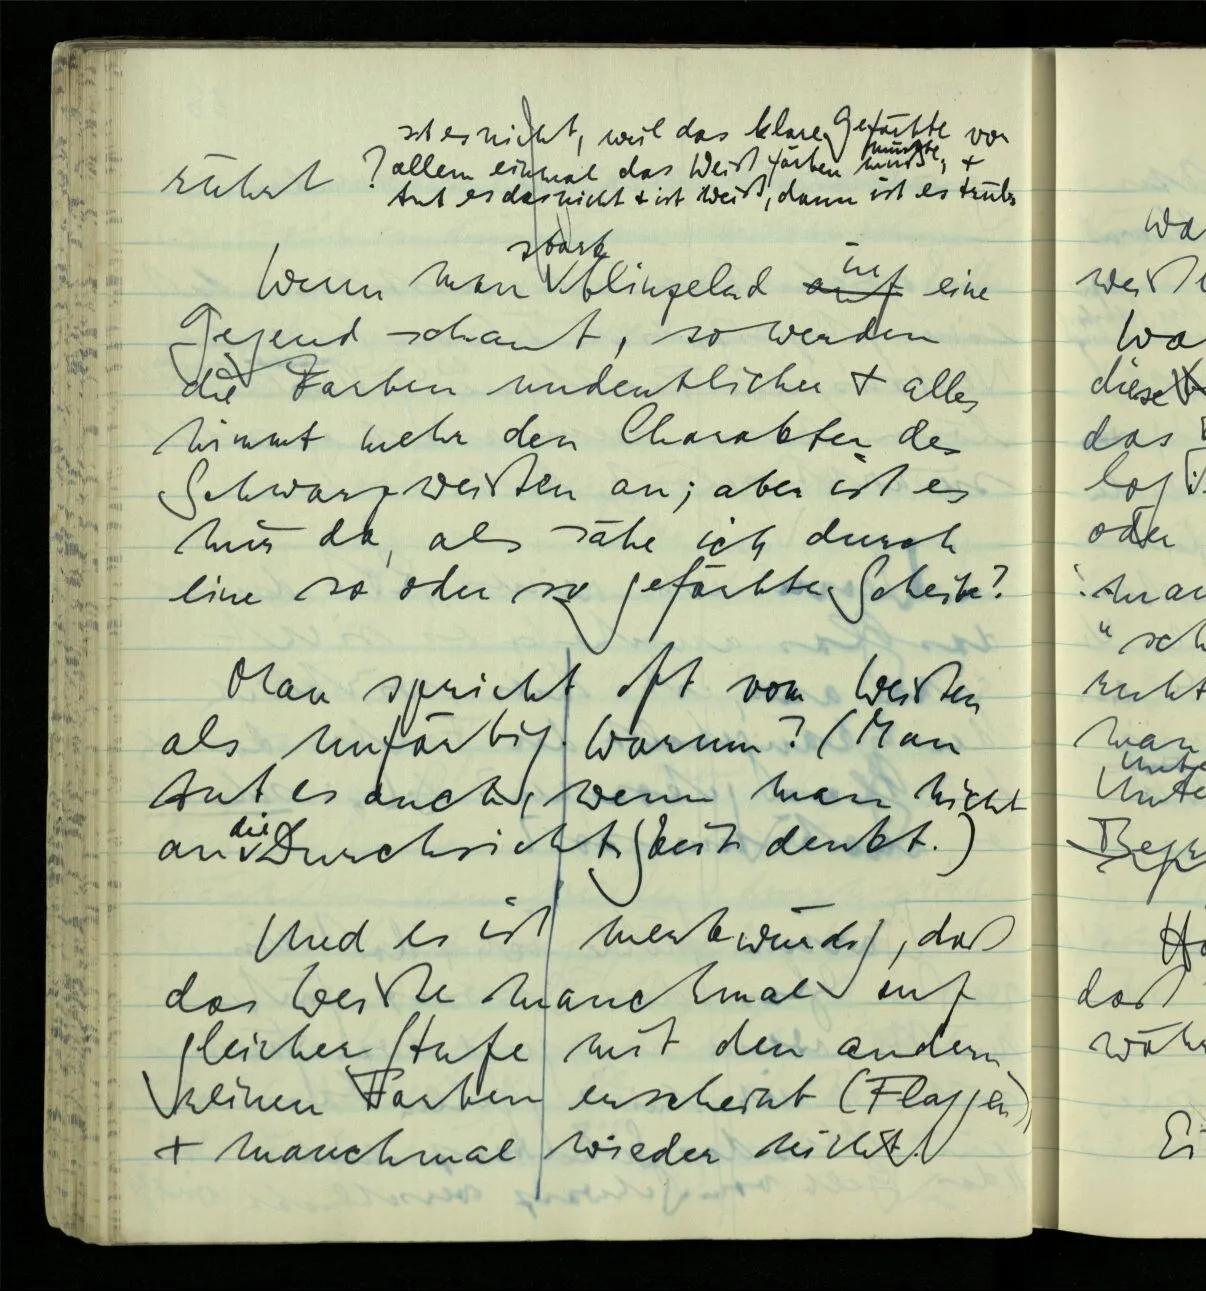 ist es nicht, weil das klare Gefärbte vor
rührt? allem einmal das Weiß färben müßte, +
tut es das nicht + ist weiß, dann ist es trüb
stark
Wenn man blinzelnd auf in eine
Gegend schaut, so werden
die Farben undeutlicher + alles
nimmt mehr den Charakter des
Schwarzweißen an; aber ist es
mir da, als sähe ich durch
eine so oder so gefärbte Scheibe?
Man spricht oft vom Weißen
als unfärbig. Warum? (Man
tut es auch, wenn man nicht
an die Durchsichtigkeit denkt.)
Und es ist merkwürdig, daß
das Weiße manchmal auf
gleicher Stufe mit den andern
reinen Farben erscheint (Flaggen)
+ manchmal wieder nicht.
wa
weiße
Wa
diese
das
log
oder
man
"sch
nicht
man
Unte
Unte
Begr
daß
wäh
Ei